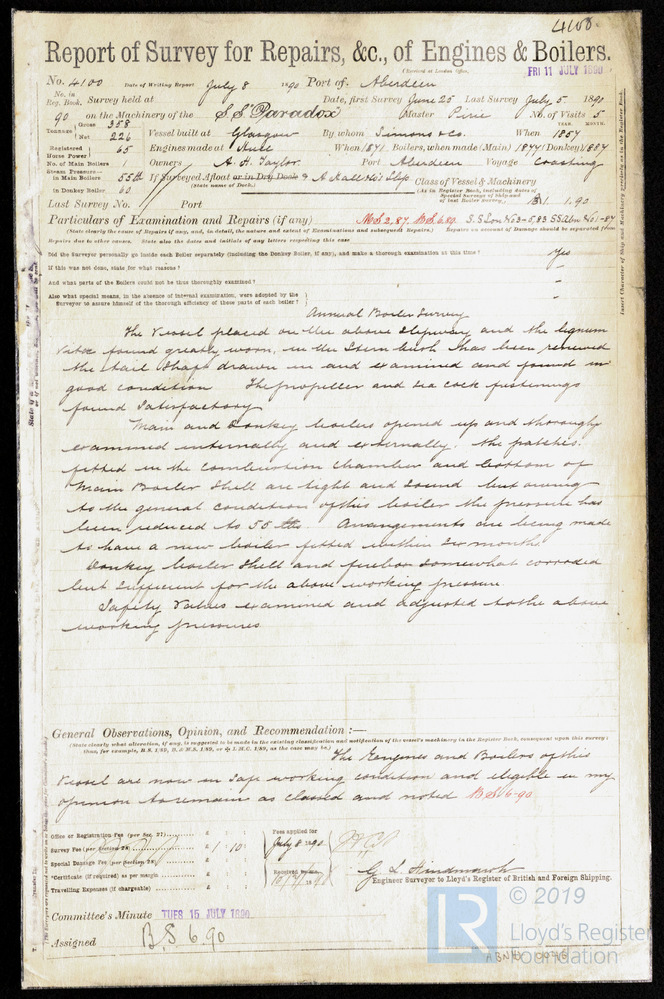 4100.
Report of Survey for Repairs, &c., of Engines & Boilers.
(Received at London Office, FRI 11 JULY 1890
No. 4100 Date of Writing Report July 8 1890 Port of Aberdeen
No. in Reg. Book. Survey held at Date, first Survey June 25 Last Survey July 5 1890
90 on the Machinery of the S.S. "Paradox" Master No. of Visits 5
Tonnage Gross 358 Net 226 Vessel built at Glasgow By whom Simons & Co. When 1857
Registered Horse Power 65 Engines made at Hull When 1871 Boilers, when made (Main) 1871 (Donkey) 1887
No. of Main Boilers Owners A. H. Taylor Port Aberdeen Voyage Coasting
Steam Pressure in Main Boilers 55 lb If Surveyed Afloat or in Dry Dock
(State name of Dock.)
in Donkey Boiler 60 Class of Vessel & Machinery
(As in Register Book, including dates of Special Surveys of Ship and of last Boiler Survey.)
Last Survey No. Port 1.90
Particulars of Examination and Repairs (if any) M.S. 2,87. B.S. 6.89.
(State clearly the cause of Repairs (if any, and, in detail, the nature and extent of Examinations and subsequent Repairs.) Repairs on account of Damage should be separated from
Repairs due to other causes. State also the dates and initials of any letters respecting this case
Did the Surveyor personally go inside each Boiler separately (including the Donkey Boiler, if any), and make a thorough examination at this time? Yes
If this was not done, state for what reasons? –
And what parts of the Boilers could not be thus thoroughly examined? –
Also what special means, in the absence of internal examination, were adopted by the Surveyor to assure himself of the thorough efficiency of those parts of each boiler? –
Annual Boiler Survey
The Vessel placed on the above slipway and the lignum
vitæ found greatly worn, in the stern bush has been renewed
the tail shaft drawn in and examined and found in
good condition The propeller and sea cock fastenings
found satisfactory
Main and Donkey boilers opened up and thoroughly
examined internally and externally. The patches
fitted in the combustion chamber and bottom of
Main Boiler shell are tight and sound but owing
to the general condition of this boiler the pressure has
been reduced to 55 lbs. Arrangements are being made
to have a new boiler fitted within six months
Donkey boiler shell and firebox somewhat corroded
but sufficient for the above working pressure
Safety Valves examined and adjusted to the above
working pressures
General Observations, Opinion, and Recommendation :—
(State clearly what alteration, if any, is suggested to be made in the existing classification and notification of the vessel's machinery in the Register Book, consequent upon this survey;
thus, for example, B.S. 1/89, B. & M.S. 1/89, or L.M.C. 1/89, as the case may be.)
The Engines and Boilers of this
Vessel are now in safe working condition and eligible in my
opinion to remain as classed and noted B.S. 6-90
Office or Registration Fee (per Sec. 27) £ : :
Survey Fee (per Section 28) £ 1 : 10 :
Special Damage Fee (per Section 28) £ : :
Certificate (if required) as per margin £ : :
Travelling Expenses (if chargeable) £ : :
Fees applied for July 8 1890
Received by me,
Engineer Surveyor to Lloyd's Register of British and Foreign Shipping.
Committee's Minute TUES 15 JULY 1890
Assigned B.S 6.90
LR © 2019
Lloyd's Register
Foundation